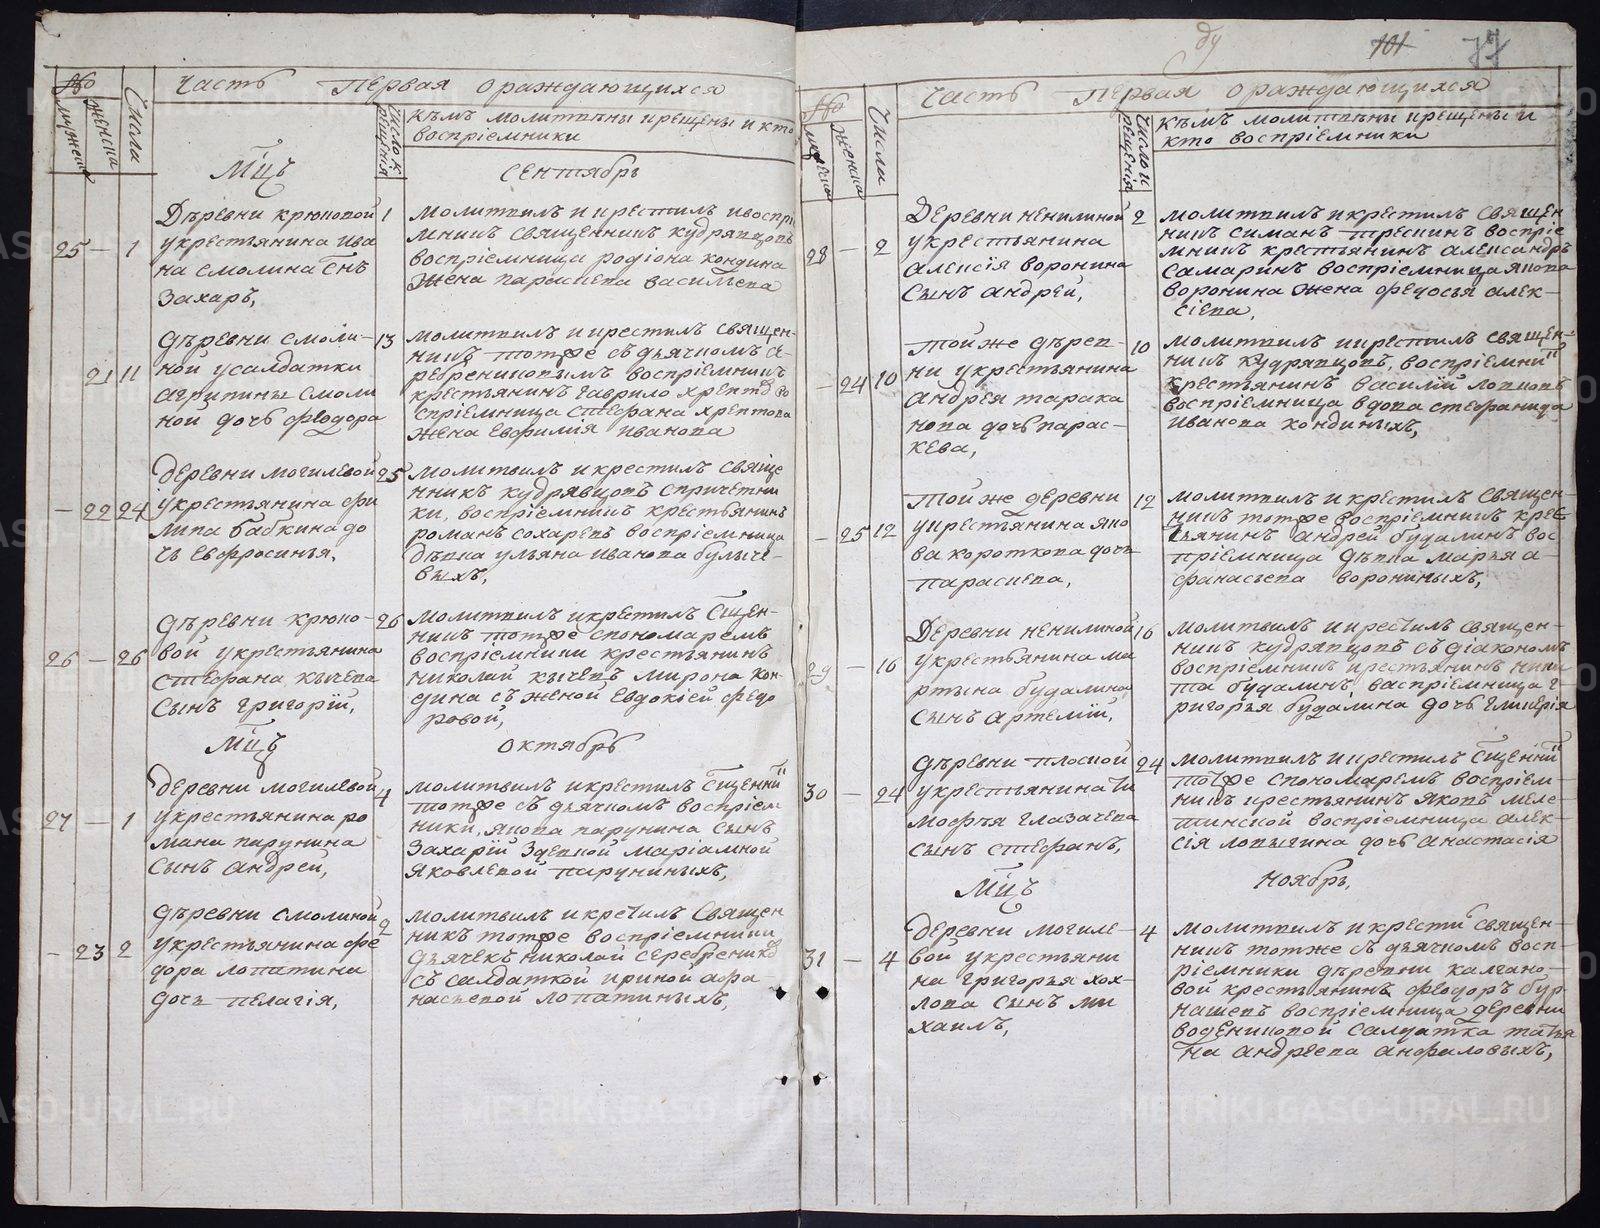 №
мужеска
женска
Числа
Часть Первая ораждающихся
Число крещенія
Къмъ молитвены икрещены и кто
воспріемники
Мцъ
Сентябрь
25 — 1
Дѣревни крюковой
укрестьянина ива
на смолина Снъ
Захаръ,
1
молитвилъ и крестилъ ивоспрі
мникъ священникъ кудрявцовъ
воспріемница родіона кондина
жена параскева василъева
21 11
дѣревни смоли-
ной усалдатки
агрипины смоли
ной дочь фѣодора
13
молитвилъ икрестилъ священ-
никъ тотже съдьячкомъ се-
ребрениковымъ воспріемникъ
крестьянинъ гаврило хрептовъ во
спріемница стефана хрептова
жена евфимія иванова
— 22 24
деревни могилевой
укрестьянина фи
липа бабкина до
чь евфросинья.
25
молитвилъ и крестилъ свяще
нникъ кудрявцовъ спричетни
ки, воспріемникъ крестьянинъ
романъ сохаревъ воспріемница
дѣвка ульяна иванова булыче-
выхъ,
26 — 26
дѣревни крюко-
вой укрестьянина
стефана кычева
сынъ григорій,
26
молитвилъ икрестилъ Сщен-
никъ тотже спономаремъ
воспріемники крестьянинъ
николай кычевъ мирона кон-
дина съ женой евдокіей федо
ровой,
Мцъ
октябрь
27 — 1
деревни могилевой
укрестьянина ро
мана парунина
сынъ андрей,
4
молитвилъ икрестилъ Сщенни
тотже съ дьячкомъ воспріем
ники, якова парунина сынъ
захарій здевкой маріамной
яковлевой паруниныхъ,
— 23 2
дѣревни смолиной
укрестьянина фе
дора лопатина
дочь пелагія,
2
молитвилъ икрестилъ священ
никъ тотже воспріемники
дьячекъ николай серебрениковъ
съ салдаткой ириной афа-
насьевой лопатиныхъ,
101
77
№
мужеска
женска
Числа
Часть Первая ораждающихся
Число крещенія
къмъ молитвены крещены и
кто воспріемники
28 — 2
деревни ненилиной
укрестьянина
алексія воронина
сынъ андрей,
2
молитвилъ икрестилъ священ
никъ симанъ трескинъ воспріе
мникъ крестьянинъ александръ
самаринъ воспріемница якова
воронина жена федосья алек-
сіева,
— 24 10
тойже дѣрев-
ни укрестьянина
андрея тарака
нова дочь парас-
кева,
10
молитвилъ икрестилъ священ-
никъ кудрявцовъ, воспріемни
крестьянинъ василій лопковъ
воспріемница вдова стефанида
иванова кондиныхъ,
— 25 12
тойже деревни
укрестьянина яко
ва короткова дочь
параскева,
12
молитвилъ икрестилъ священ-
никъ тотже воспріемникъ крес
тьянинъ андрей будалинъ вос
пріемница дѣвка марья а-
фанасьева ворониныхъ,
29 — 16
деревни ненилиной
укрестьянина ма
ртына будалина
сынъ артемій,
16
молитвилъ икрестилъ священ-
никъ кудрявцовъ съдіакономъ
воспріемникъ крестьянинъ ники
та будалинъ васпріемница г-
ригорья будалина дочь гликерія
30 — 24
дѣревни плоской
укрестьянина ти
мофѣя глазачева
сынъ стефанъ,
24
молитвилъ икрестилъ Сщенни
тотже спономаремъ воспріем-
никъ крестьянинъ яковъ меле-
тинской воспріемница алек-
сія лопыгина дочь анастасія
Мцъ
Ноябрь,
31 — 4
деревни могиле-
вой укрестьяни
на григорья хох-
лова сынъ ми
хаилъ,
4
молитвилъ икрести священ-
никъ тотже съ дьячкомъ восп-
ріемники дѣревни калгано-
вой крестьянинъ фѣодоръ бур-
нашевъ воспріемница деревни
воденниковой салдатка татья
на андрѣева анфаловыхъ,
METRIKI.GASO-URAL.RU